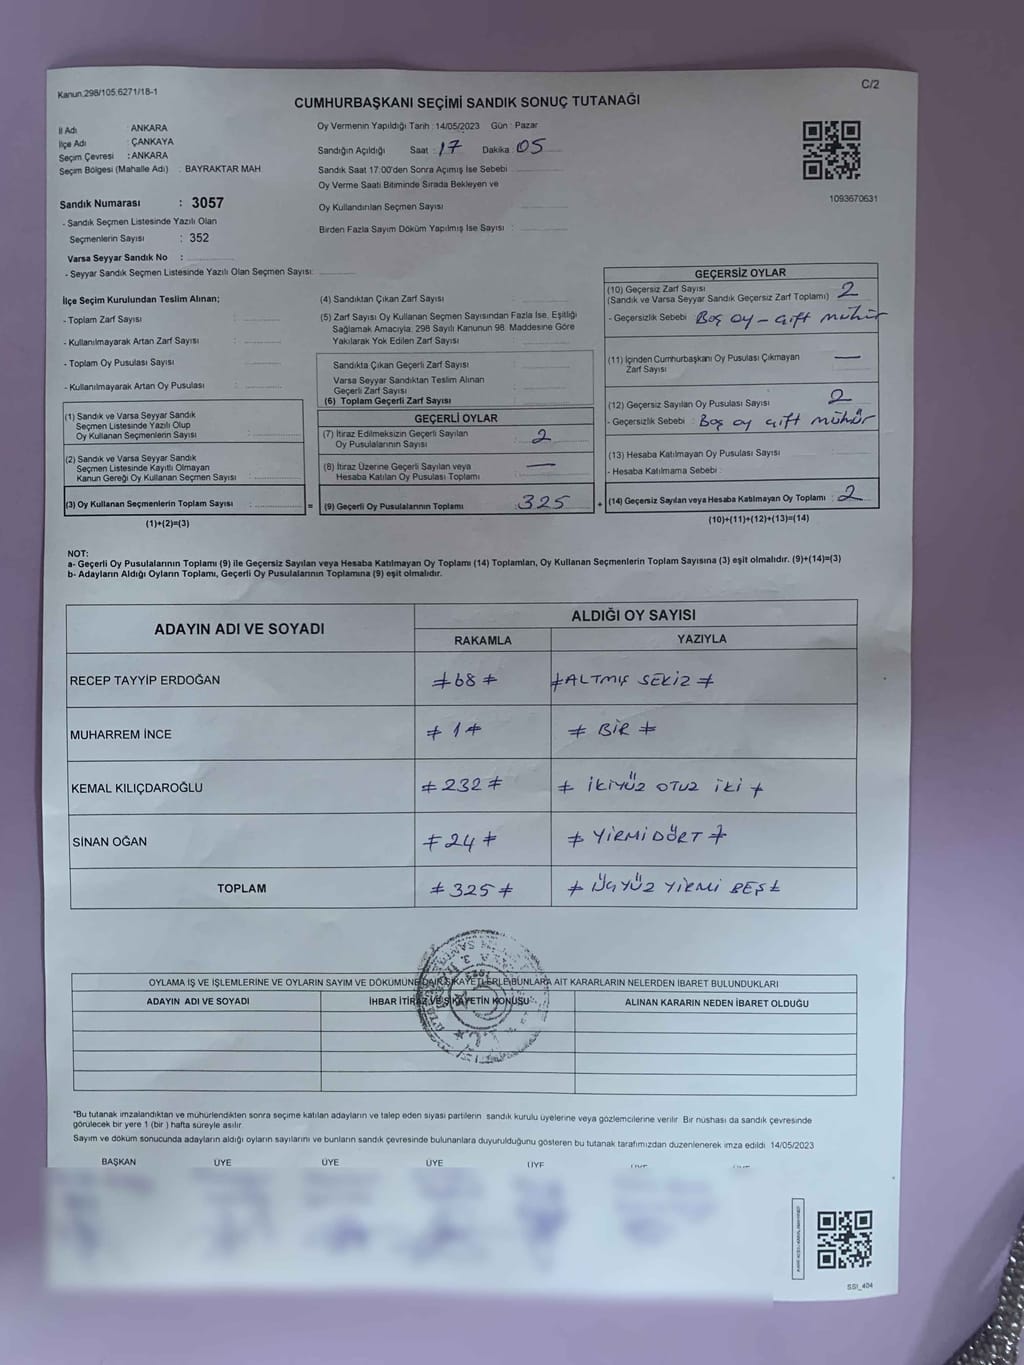 Kanun.298/105.6271/18-1
C/2
CUMHURBAŞKANI SEÇİMİ SANDIK SONUÇ TUTANAĞI
İl Adı : ANKARA
İlçe Adı : ÇANKAYA
Seçim Çevresi : ANKARA
Seçim Bölgesi (Mahalle Adı) : BAYRAKTAR MAH
Sandık Numarası : 3057
- Sandık Seçmen Listesinde Yazılı Olan
Seçmenlerin Sayısı : 352
Varsa Seyyar Sandık No :
- Seyyar Sandık Seçmen Listesinde Yazılı Olan Seçmen Sayısı:
Oy Vermenin Yapıldığı Tarih : 14/05/2023 Gün : Pazar
Sandığın Açıldığı Saat : 17 Dakika : 05
Sandık Saat 17:00'den Sonra Açımış İse Sebebi :
Oy Verme Saati Bitiminde Sırada Bekleyen ve
Oy Kullandırılan Seçmen Sayısı
Birden Fazla Sayım Döküm Yapılmış İse Sayısı :
1093670631
İlçe Seçim Kurulundan Teslim Alınan;
- Toplam Zarf Sayısı :
- Kullanılmayarak Artan Zarf Sayısı :
- Toplam Oy Pusulası Sayısı :
- Kullanılmayarak Artan Oy Pusulası :
(1) Sandık ve Varsa Seyyar Sandık
Seçmen Listesinde Yazılı Olup
Oy Kullanan Seçmenlerin Sayısı :
(2) Sandık ve Varsa Seyyar Sandık
Seçmen Listesinde Kayıtlı Olmayan
Kanun Gereği Oy Kullanan Seçmen Sayısı :
(3) Oy Kullanan Seçmenlerin Toplam Sayısı :
(1)+(2)=(3)
(4) Sandıktan Çıkan Zarf Sayısı
(5) Zarf Sayısı Oy Kullanan Seçmen Sayısından Fazla İse, Eşitliği
Sağlamak Amacıyla, 298 Sayılı Kanunun 98. Maddesine Göre
Yakılarak Yok Edilen Zarf Sayısı
Sandıkta Çıkan Geçerli Zarf Sayısı
Varsa Seyyar Sandıktan Teslim Alınan
Geçerli Zarf Sayısı
(6) Toplam Geçerli Zarf Sayısı
GEÇERLİ OYLAR
(7) İtiraz Edilmeksizin Geçerli Sayılan : 2
Oy Pusulalarının Sayısı
(8) İtiraz Üzerine Geçerli Sayılan veya : —
Hesaba Katılan Oy Pusulası Toplamı
= (9) Geçerli Oy Pusulalarının Toplamı : 325 +
GEÇERSİZ OYLAR
(10) Geçersiz Zarf Sayısı
(Sandık ve Varsa Seyyar Sandık Geçersiz Zarf Toplamı) : 2
- Geçersizlik Sebebi : Boş oy – Çift mühür
(11) İçinden Cumhurbaşkanı Oy Pusulası Çıkmayan : —
Zarf Sayısı
(12) Geçersiz Sayılan Oy Pusulası Sayısı : 2
- Geçersizlik Sebebi : Boş oy çift mühür
(13) Hesaba Katılmayan Oy Pusulası Sayısı :
- Hesaba Katılmama Sebebi :
(14) Geçersiz Sayılan veya Hesaba Katılmayan Oy Toplamı : 2
(10)+(11)+(12)+(13)=(14)
NOT:
a- Geçerli Oy Pusulalarının Toplamı (9) ile Geçersiz Sayılan veya Hesaba Katılmayan Oy Toplamı (14) Toplamları, Oy Kullanan Seçmenlerin Toplam Sayısına (3) eşit olmalıdır. (9)+(14)=(3)
b- Adayların Aldığı Oyların Toplamı, Geçerli Oy Pusulalarının Toplamına (9) eşit olmalıdır.
ADAYIN ADI VE SOYADI
ALDIĞI OY SAYISI
RAKAMLA YAZIYLA
RECEP TAYYİP ERDOĞAN ≠ 68 ≠ ≠ ALTMIŞ SEKİZ ≠
MUHARREM İNCE ≠ 1 ≠ ≠ BİR ≠
KEMAL KILIÇDAROĞLU ≠ 232 ≠ ≠ İKİYÜZ OTUZ İKİ ≠
SİNAN OĞAN ≠ 24 ≠ ≠ YİRMİ DÖRT ≠
TOPLAM ≠ 325 ≠ ≠ ÜÇYÜZ YİRMİ BEŞ ≠
OYLAMA İŞ VE İŞLEMLERİNE VE OYLARIN SAYIM VE DÖKÜMÜNE DAİR ŞİKAYETLERLE BUNLARA AİT KARARLARIN NELERDEN İBARET BULUNDUKLARI
ADAYIN ADI VE SOYADI İHBAR İTİRAZ VE ŞİKAYETİN KONUSU ALINAN KARARIN NEDEN İBARET OLDUĞU
*Bu tutanak imzalandıktan ve mühürlendikten sonra seçime katılan adayların ve talep eden siyasi partilerin sandık kurulu üyelerine veya gözlemcilerine verilir. Bir nüshası da sandık çevresinde
görülecek bir yere 1 (bir) hafta süreyle asılır.
Sayım ve döküm sonucunda adayların aldığı oyların sayılarını ve bunların sandık çevresinde bulunanlara duyurulduğunu gösteren bu tutanak tarafımızdan düzenlenerek imza edildi. 14/05/2023
BAŞKAN ÜYE ÜYE ÜYE ÜYE
SSI_404